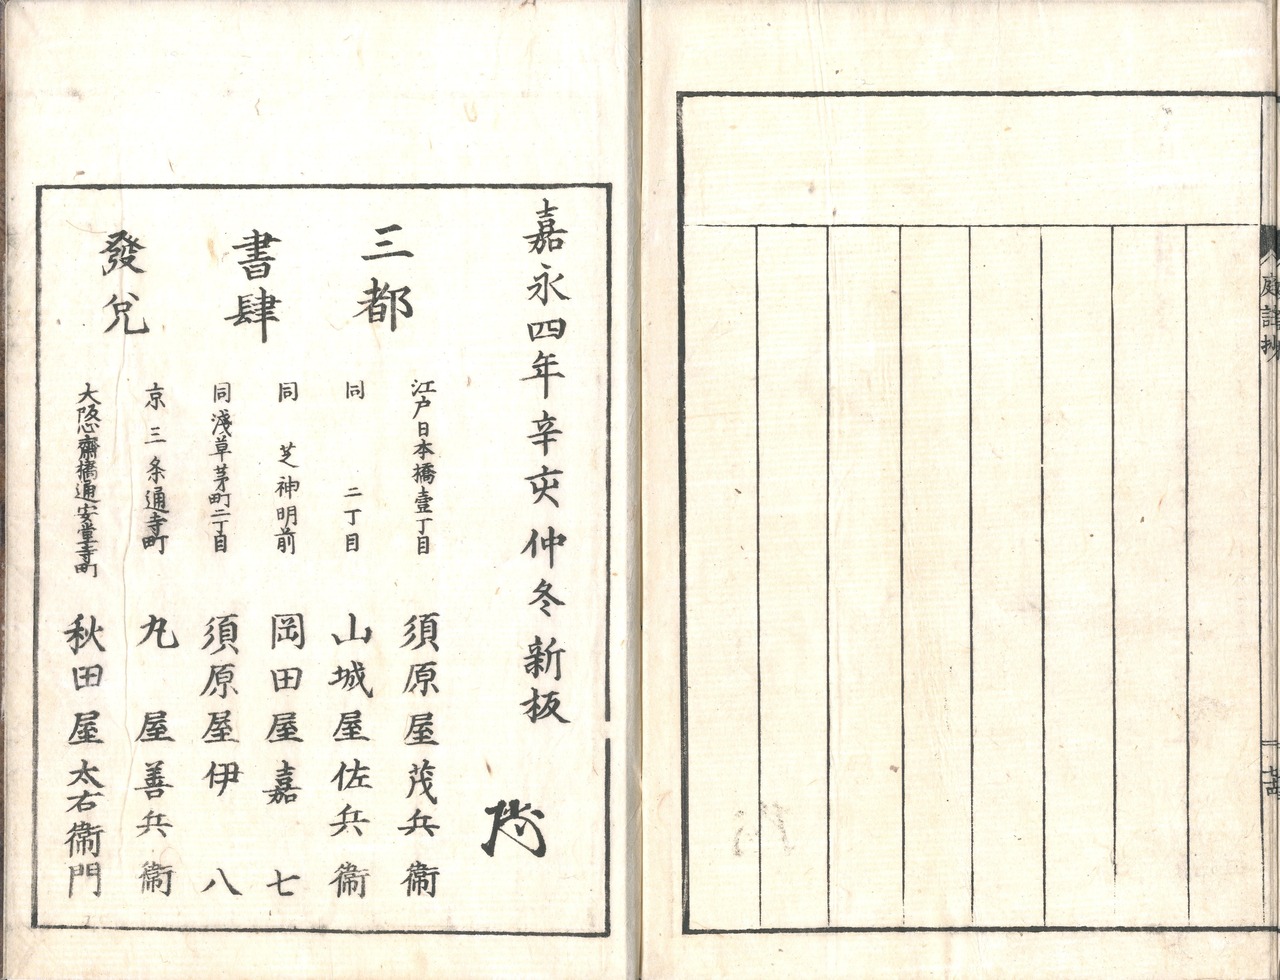 庭訓抄
七十四
嘉永四年辛亥仲冬新板
三都
書肆
發兌
江戸日本橋壹丁目 須原屋茂兵衞
同 二丁目 山城屋佐兵衞
同 芝神明前 岡田屋嘉七
同淺草茅町二丁目 須原屋伊八
京三条通寺町 丸屋善兵衞
大阪心齋橋通安堂寺町 秋田屋太右衞門